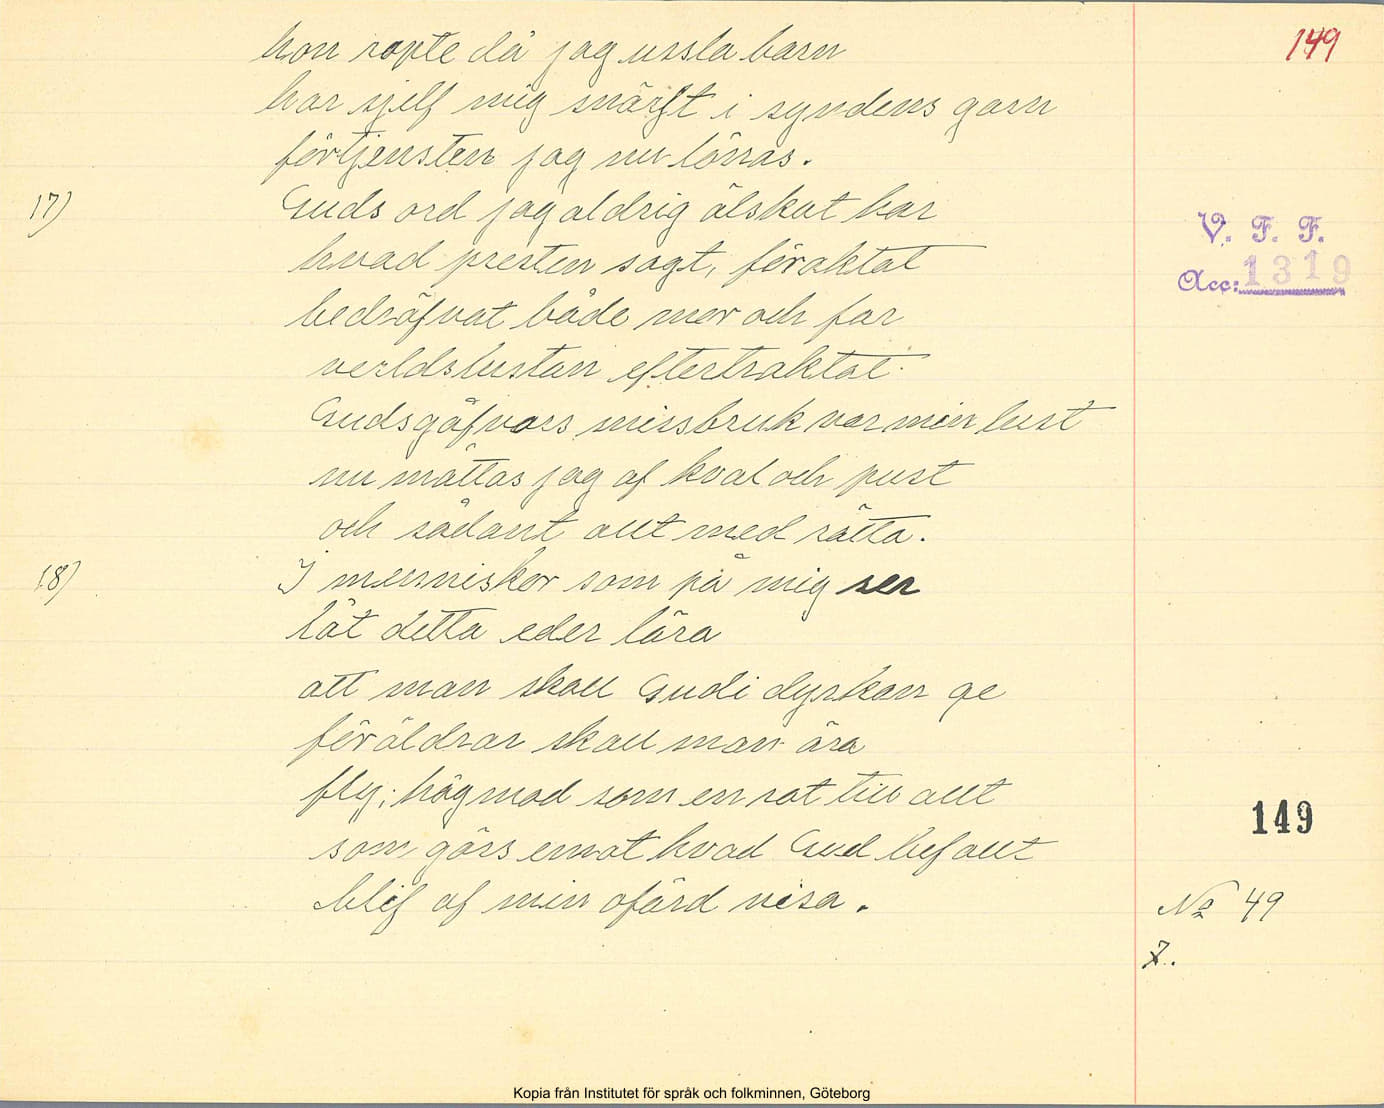 149
hon ropte då jag ussla barn
har sjelf mig snärft i syndens garn
förtjensten jag nu lönas.
17) Guds ord jag aldrig älskat har
hvad presten sagt, föraktat
bedröfvat både mor och far
verldslustan eftertraktat
Gudsgåfvors missbruk var min lust
nu mättas jag af kval och pust
och sådant allt med rätta.
18) I menniskor som på mig ser
låt detta eder lära
att man skall Gudi dyrkan ge
föräldrar skall man ära
fly; högmod som en rot till allt
som görs emot hvad Gud befallt
blif af min ofärd visa.
V. F. F.
Acc: 1319
149
No 49
7.
Kopia från Institutet för språk och folkminnen, Göteborg